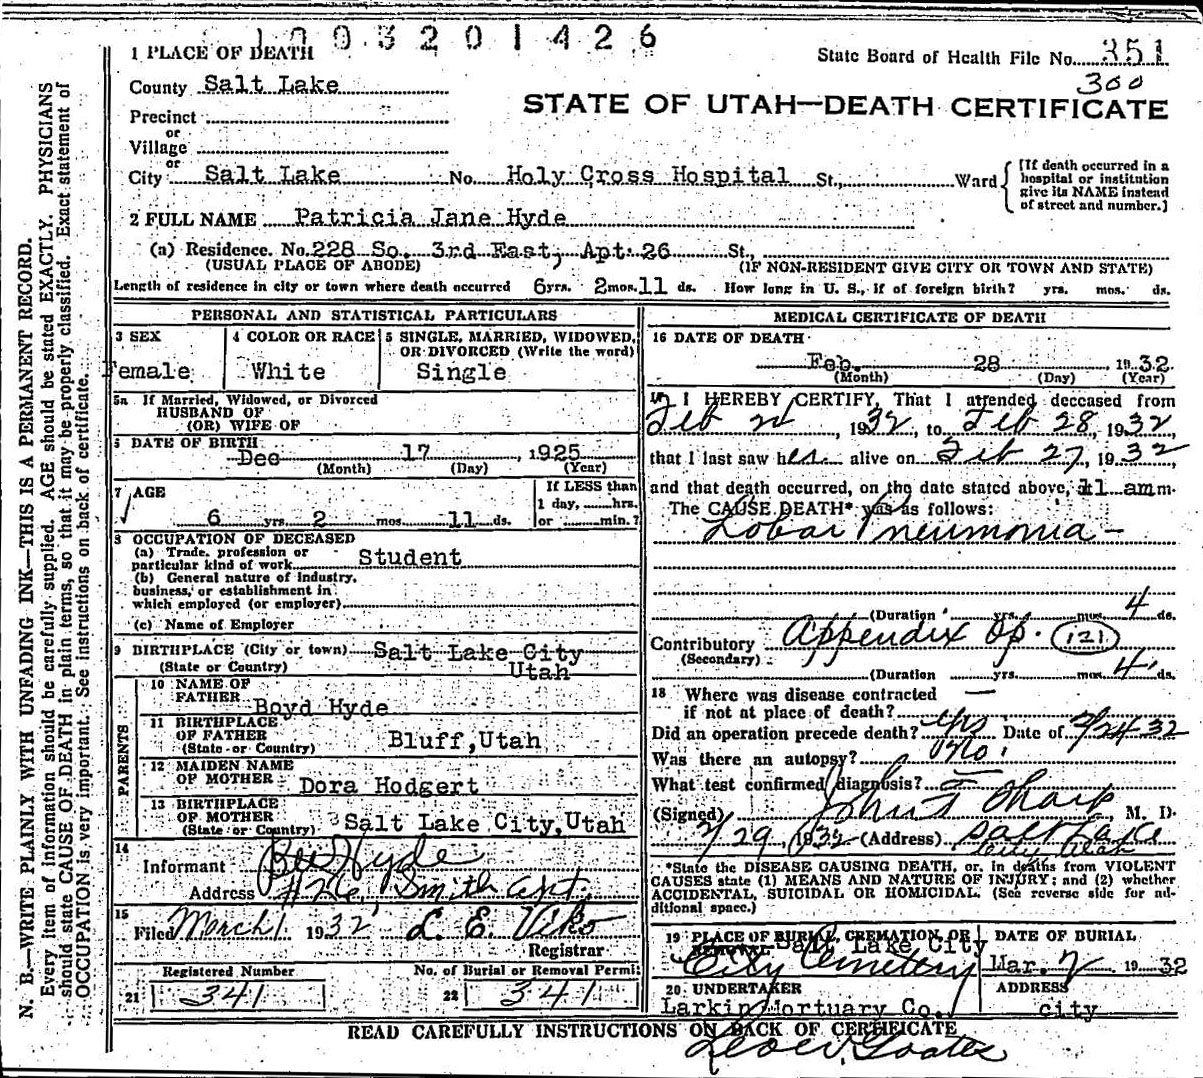 1003201426
1 PLACE OF DEATH
State Board of Health File No. 351
300
County Salt Lake
STATE OF UTAH—DEATH CERTIFICATE
Precinct
or
Village
or
City Salt Lake No. Holy Cross Hospital St., Ward
[If death occurred in a
hospital or institution
give its NAME instead
of street and number.]
2 FULL NAME Patricia Jane Hyde
(a) Residence. No. 228 So. 3rd East, Apt. 26 St.,
(USUAL PLACE OF ABODE) (IF NON-RESIDENT GIVE CITY OR TOWN AND STATE)
Length of residence in city or town where death occurred 6 yrs. 2 mos. 11 ds. How long in U. S., if of foreign birth? yrs. mos. ds.
PERSONAL AND STATISTICAL PARTICULARS
3 SEX
Female
4 COLOR OR RACE
White
5 SINGLE, MARRIED, WIDOWED,
OR DIVORCED (Write the word)
Single
5a If Married, Widowed, or Divorced
HUSBAND OF
(OR) WIFE OF
6 DATE OF BIRTH
Dec 17, 1925
(Month) (Day) (Year)
7 AGE
If LESS than
1 day, hrs.
6 yrs. 2 mos. 11 ds. or min.?
8 OCCUPATION OF DECEASED
(a) Trade, profession or
particular kind of work Student
(b) General nature of industry,
business, or establishment in
which employed (or employer)
(c) Name of Employer
9 BIRTHPLACE (City or town) Salt Lake City
(State or Country) Utah
PARENTS
10 NAME OF
FATHER Boyd Hyde
11 BIRTHPLACE
OF FATHER
(State or Country) Bluff, Utah
12 MAIDEN NAME
OF MOTHER Dora Hodgert
13 BIRTHPLACE
OF MOTHER
(State or Country) Salt Lake City, Utah
14
Informant Hyde
Address #26, Smith Apt.
15
Filed March 1 1932 L. E. Viko
Registrar
Registered Number
21 341
No. of Burial or Removal Permit
22 341
MEDICAL CERTIFICATE OF DEATH
16 DATE OF DEATH
Feb. 28 1932
(Month) (Day) (Year)
I HEREBY CERTIFY, That I attended deceased from
Feb , 1932, to Feb 28, 1932,
that I last saw her alive on Feb 27, 1932
and that death occurred, on the date stated above, 11 am m.
The CAUSE DEATH* was as follows:
Lobar Pneumonia —
(Duration yrs. mos. 4 ds.
Contributory Appendix Op. 121
(Secondary)
(Duration yrs. mos. 4 ds.
18 Where was disease contracted —
if not at place of death?
Did an operation precede death? yes Date of 2/24 32
Was there an autopsy? No.
What test confirmed diagnosis? —
(Signed) John F Sharp, M. D.
2/29, 1932 (Address) Salt Lake
City Utah
*State the DISEASE CAUSING DEATH, or, in deaths from VIOLENT
CAUSES state (1) MEANS AND NATURE OF INJURY; and (2) whether
ACCIDENTAL, SUICIDAL OR HOMICIDAL. (See reverse side for ad-
ditional space.)
19 PLACE OF BURIAL, CREMATION, OR
REMOVAL Salt Lake City
City Cemetery
DATE OF BURIAL
Mar. 2 1932
20 UNDERTAKER
Larkin Mortuary Co.
ADDRESS
city
READ CAREFULLY INSTRUCTIONS ON BACK OF CERTIFICATE
N. B.—WRITE PLAINLY WITH UNFADING INK—THIS IS A PERMANENT RECORD.
Every item of information should be carefully supplied. AGE should be stated EXACTLY. PHYSICIANS
should state CAUSE OF DEATH in plain terms, so that it may be properly classified. Exact statement of
OCCUPATION is very important. See instructions on back of certificate.